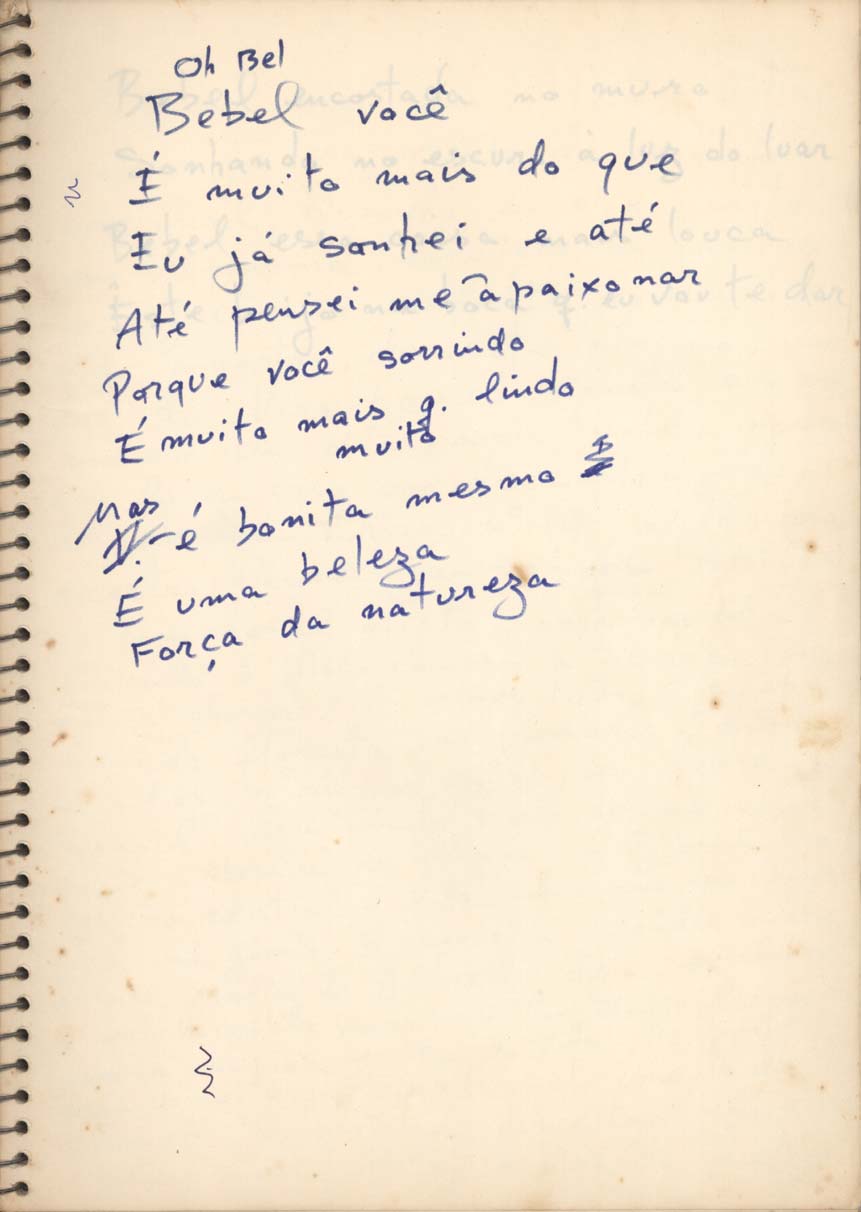 Oh Bel
Bebel você
É muito mais do que
Eu já sonhei e até
Até pensei me apaixonar
Porque você sorrindo
É muito mais q. lindo
muito
Mas
é bonita mesmo
É uma beleza
Força da natureza